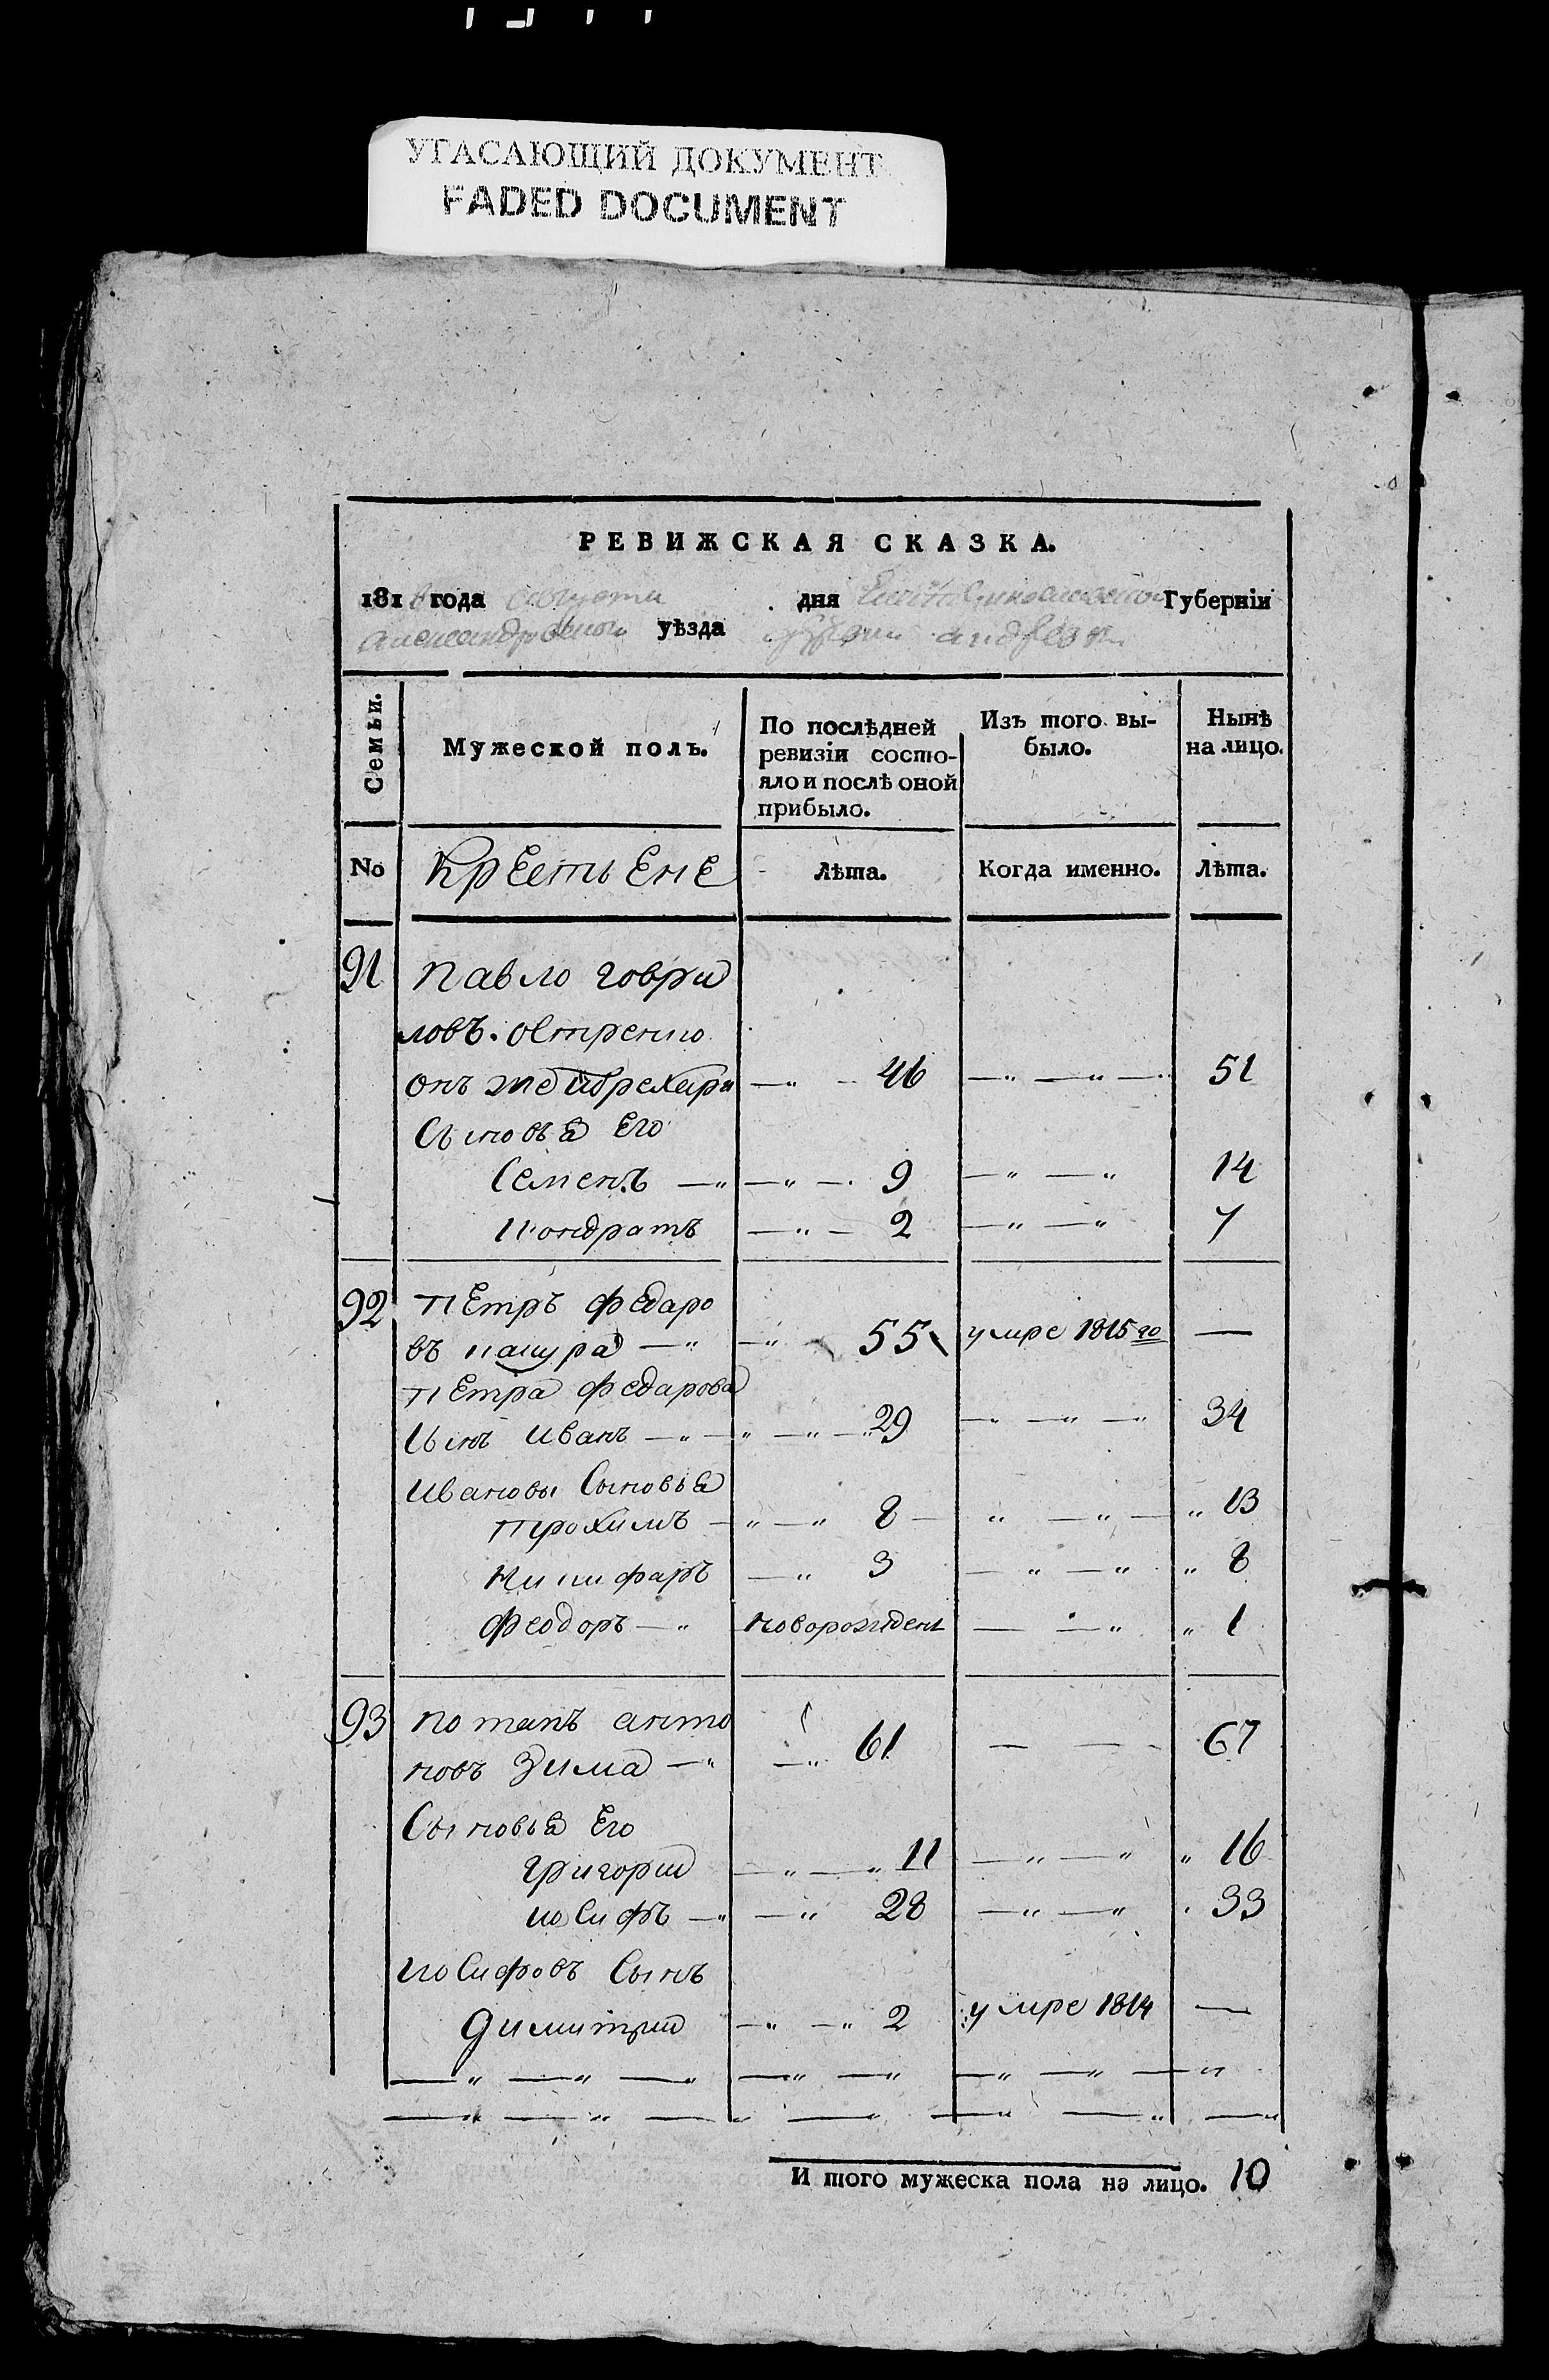 УГАСАЮЩИЙ ДОКУМЕНТ
FADED DOCUMENT
РЕВИЖСКАЯ СКАЗКА.
181 года августа дня Губернїи
александровской уѣзда
Семьи.
Мужеской полъ.
По послѣдней ревизїи состо-
яло и послѣ оной
прибыло.
Изъ того вы-
было.
Нынѣ
на лицо.
No крестьене Лѣта. Когда именно. Лѣта.
91 павло говри
ловъ. остренко
онъ же 46 51
Сыновья Его
Семенъ 9 14
Кондратъ 2 7
92 пЕтръ федаро
въ кацура 55 умре 1815 го —
пЕтра федарова
Сынъ иванъ 29 34
ивановы Сыновья
трохимъ 8 13
никифаръ 3 8
феодоръ новорожден 1
93 потапъ анто
новъ Зима 61 67
Сыновья Его
григории 11 16
иосифъ 28 33
иосифовъ Сынъ
димитрии 2 умре 1814 —
И того мужеска пола на лицо. 10